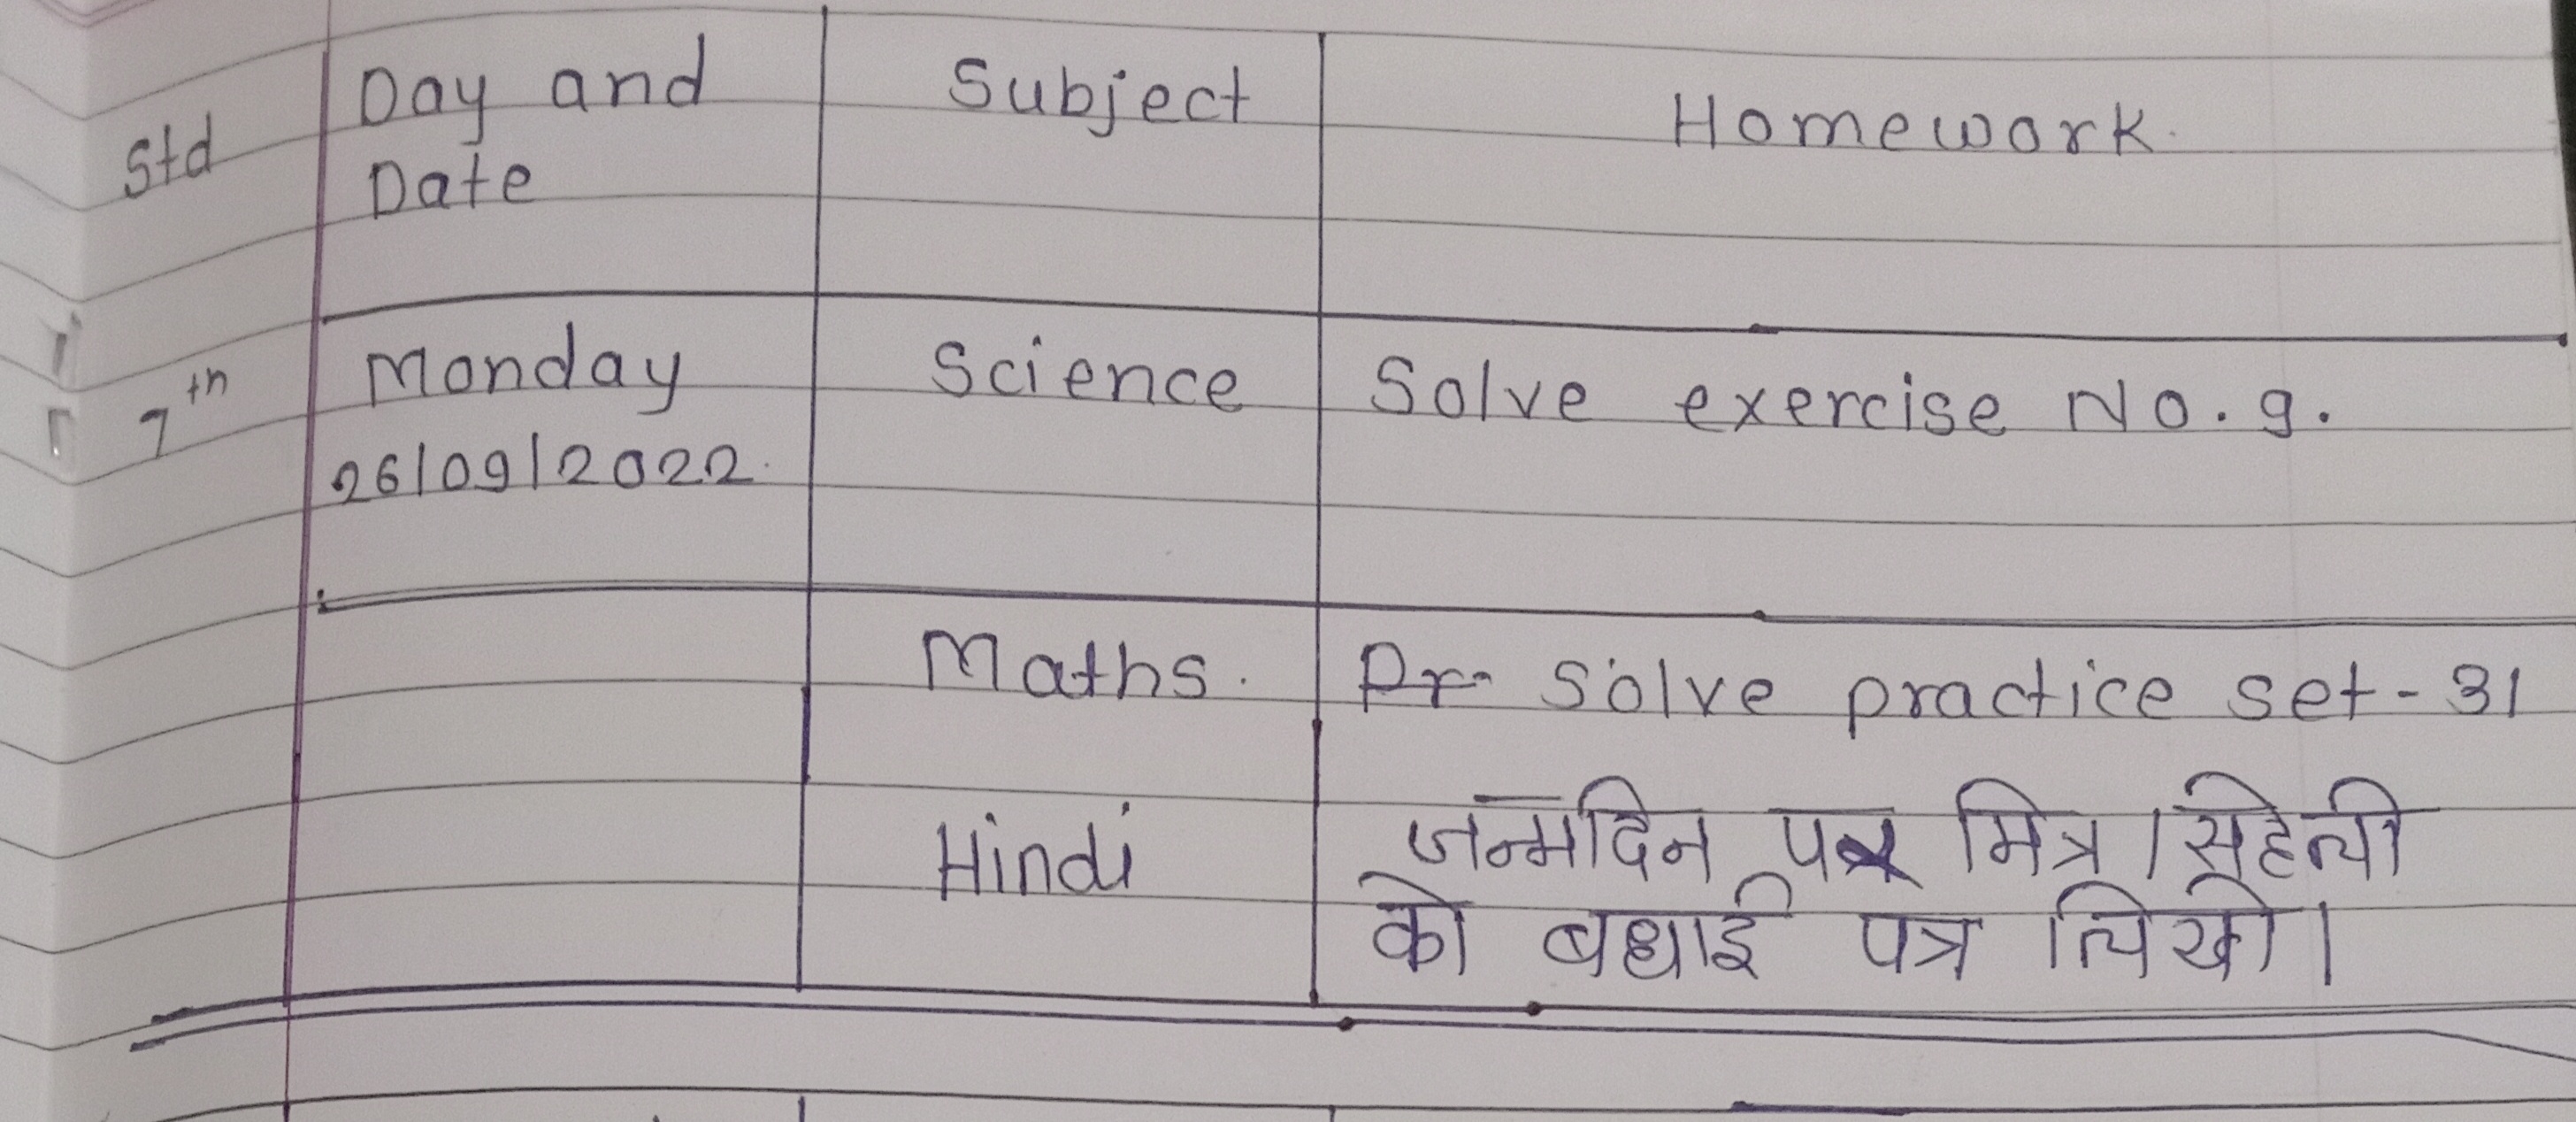 Std Day and Subject Homework.
Date
7th Monday Science Solve exercise No. 9.
26/09/2022.
Maths. Pr- Solve practice set - 31
Hindi जन्मदिन पर मित्र / सहेली
को बधाई पत्र लिखो।